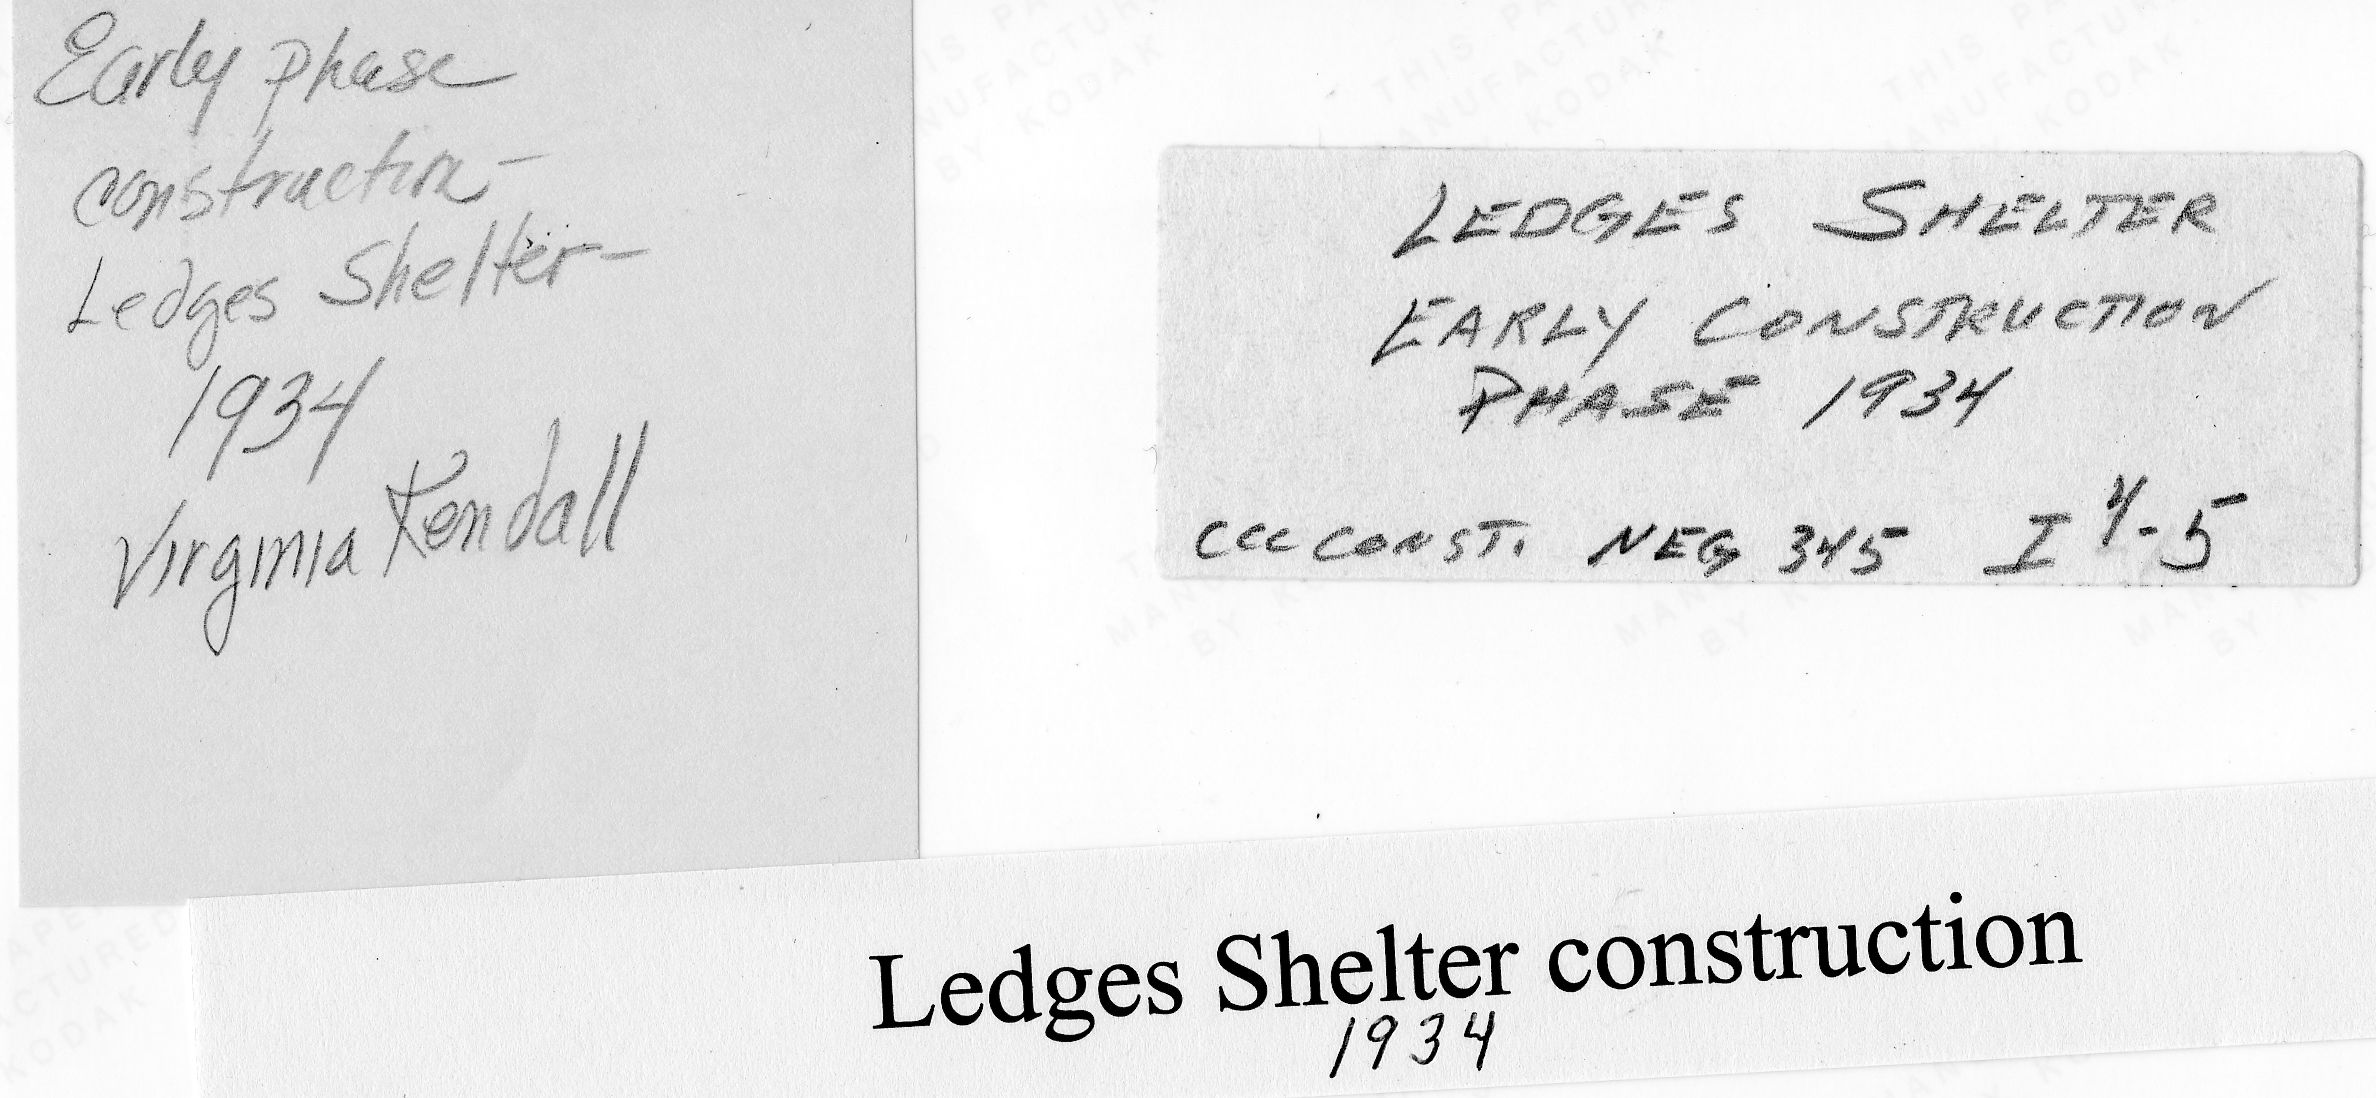 Early phase
construction -
Ledges Shelter -
1934
Virginia Kendall
LEDGES SHELTER
EARLY CONSTRUCTION
PHASE 1934
CCC CONST. NEG 345 I 4-5
Ledges Shelter construction
1934
THIS PAPER
MANUFACTURED
BY KODAK